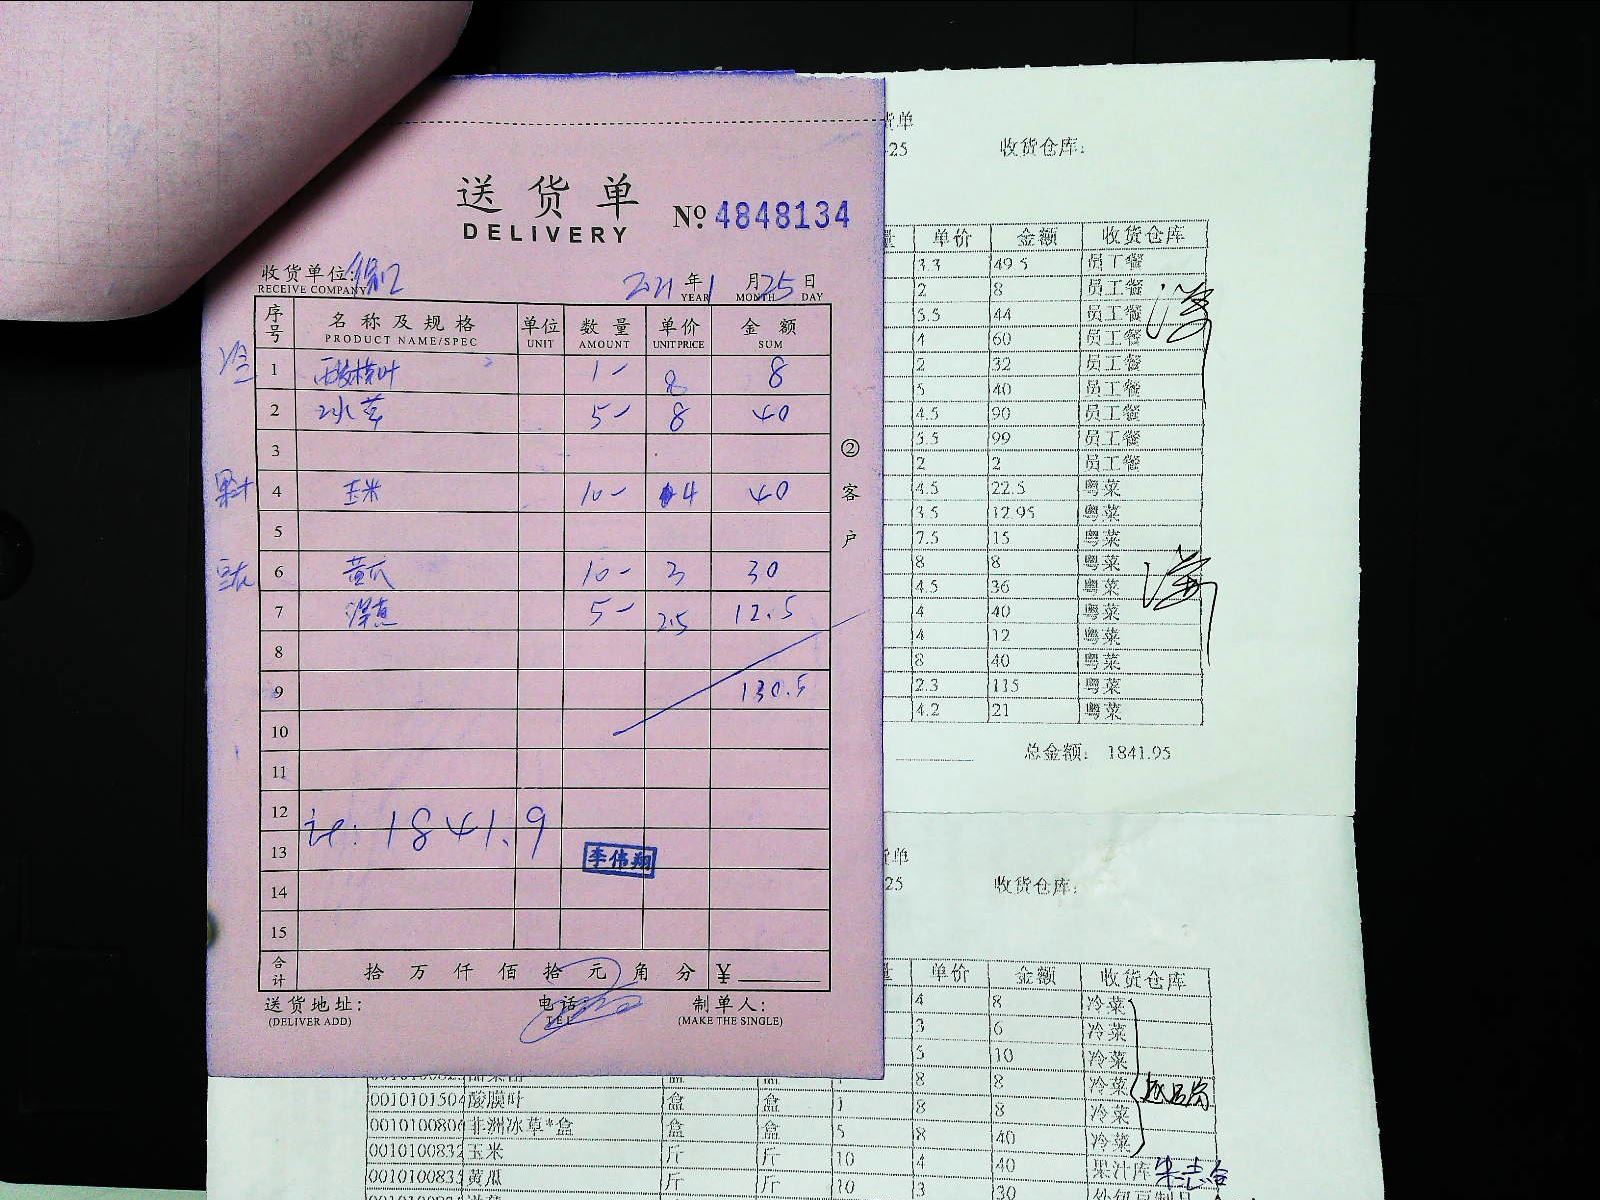 送货单
DELIVERY
№ 4848134
收货单位:
RECEIVE COMPANY
2021 年 1 月 25 日
YEAR MONTH DAY
序号 名称及规格 单位 数量 单价 金额
PRODUCT NAME/SPEC UNIT AMOUNT UNIT PRICE SUM
冷
1 酸模叶 1- 8 8
2 冰草 5- 8 40
3
果汁 4 玉米 10- 4 40
5
6 黄瓜 10- 3 30
7 洋葱 5- 2.5 12.5
8
9 130.5
10
11
12
计: 1841.9
13
李伟翔
14
15
合计 拾 万 仟 佰 拾 元 角 分 ¥
送货地址: 电话: 制单人:
(DELIVER ADD) TEL (MAKE THE SINGLE)
② 客户
货单
-25 收货仓库:
量 单价 金额 收货仓库
3.3 49.5 员工餐
2 8 员工餐
5.5 44 员工餐
4 60 员工餐
2 32 员工餐
5 40 员工餐
4.5 90 员工餐
5.5 99 员工餐
2 2 员工餐
4.5 22.5 粤菜
3.5 12.95 粤菜
7.5 15 粤菜
8 8 粤菜
4.5 36 粤菜
4 40 粤菜
4 12 粤菜
8 40 粤菜
2.3 115 粤菜
4.2 21 粤菜
总金额: 1841.95
货单
25 收货仓库:
量 单价 金额 收货仓库
4 8 冷菜
3 6 冷菜
5 10 冷菜
8 8 冷菜
001010150 酸膜叶 盒 盒 1 8 8 冷菜
001010080 非洲冰草*盒 盒 盒 5 8 40 冷菜
0010100832 玉米 斤 斤 10 4 40 果汁库
001010083 黄瓜 斤 斤 10 3 30